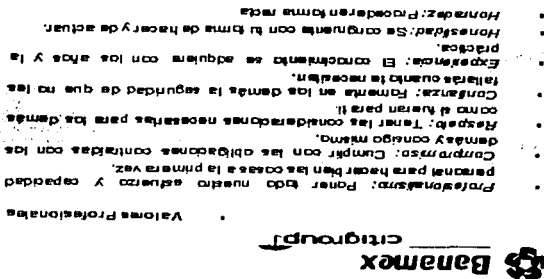 Banamex
citigroup
• Valores Profesionales
• Profesionalismo: Poner todo nuestro esfuerzo y capacidad
personal para hacer bien las cosas a la primera vez.
• Compromiso: Cumplir con las obligaciones contraídas con los
demás y consigo mismo.
• Respeto: Tener las consideraciones necesarias para los demás
como si fueran para ti.
• Confianza: Fomenta en los demás la seguridad de que no les
fallarás cuando te necesiten.
• Experiencia: El conocimiento se adquiere con los años y la
práctica.
• Honestidad: Se congruente con tu forma de hacer y de actuar.
• Honradez: Proceder en forma recta